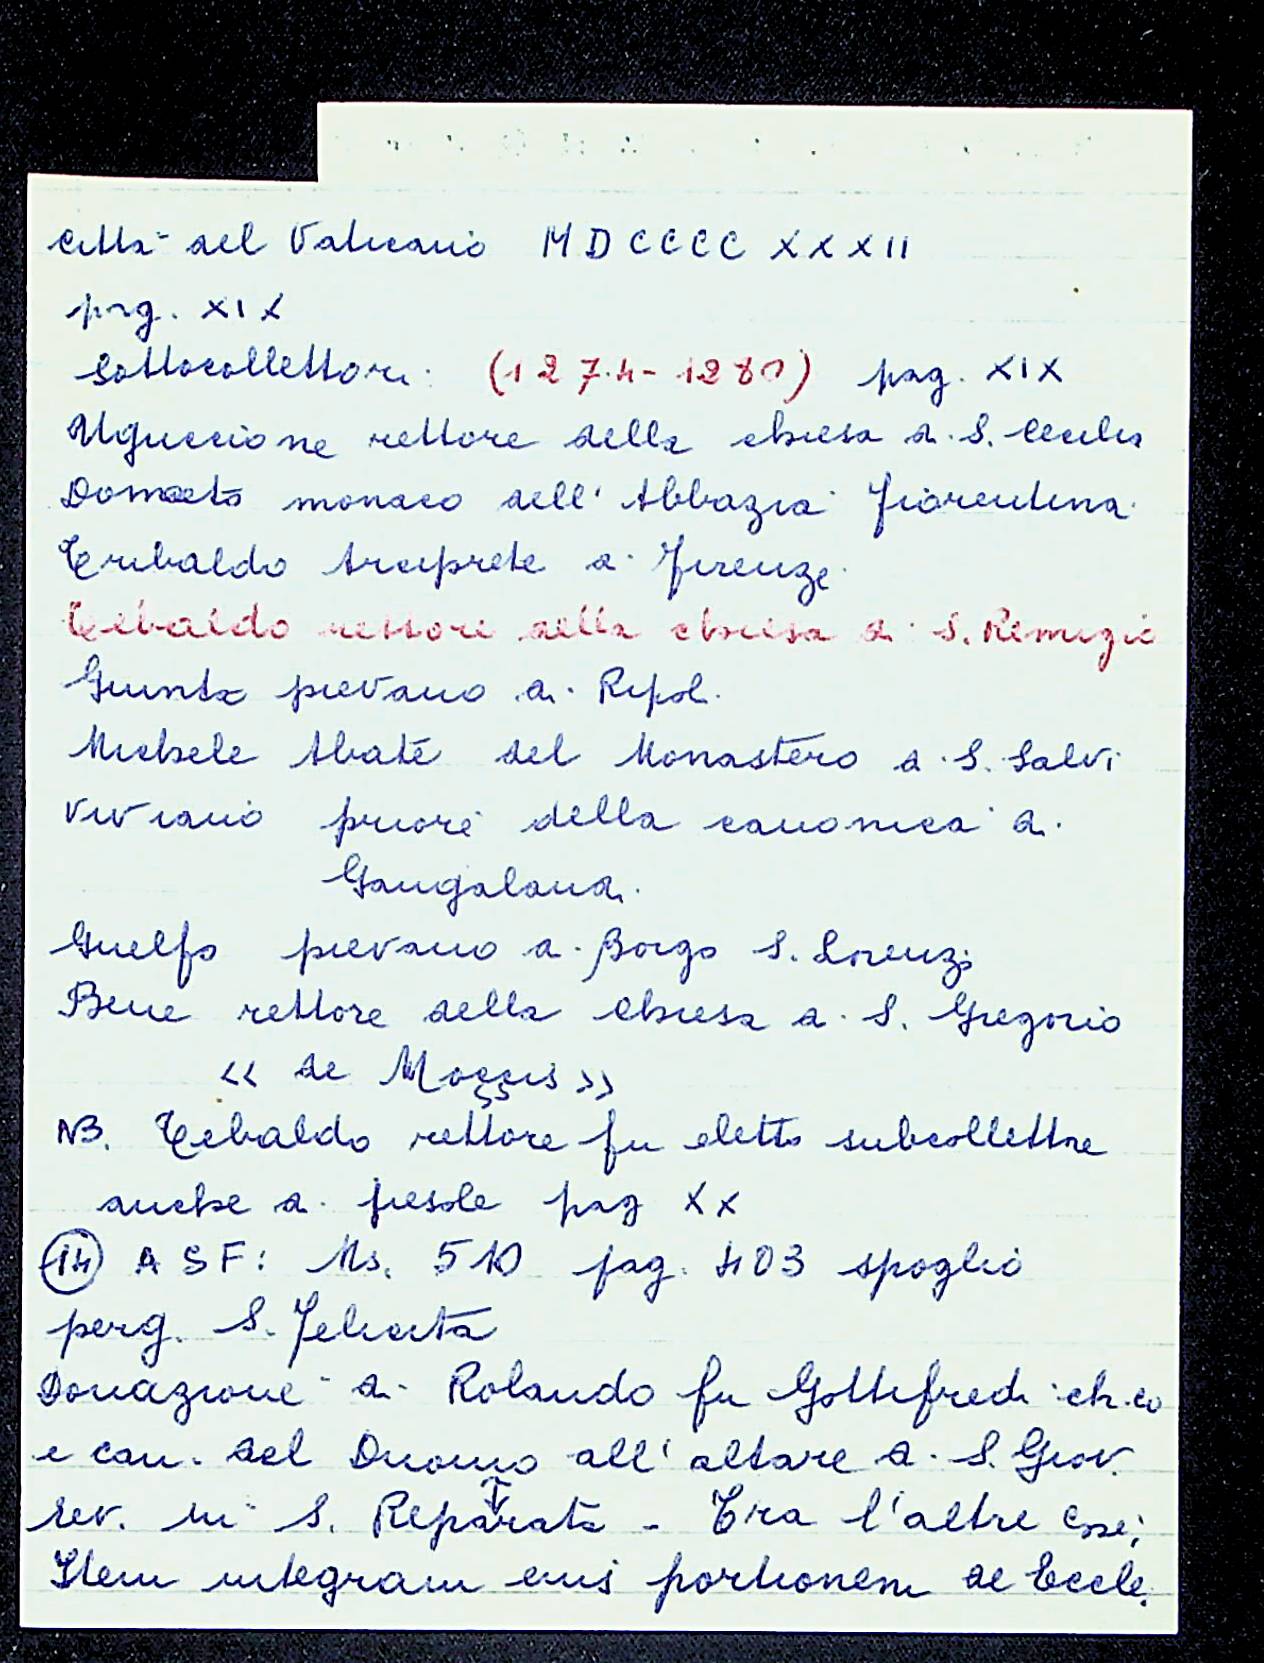 Città del Vaticano MDCCCC XXXII
pag. XIX
Sottocollettori: (1274-1280) pag. XIX
Uguccione rettore della chiesa di S. Cecilia
Donato monaco dell' Abbazia Fiorentina
Tribaldo Arciprete di Firenze
Tebaldo rettore della chiesa di S. Remigio
Giunta pievano di Ripoli
Michele Abate del Monastero di S. Salvi
Viviano priore della canonica di
Gangalandi
Guelfo pievano di Borgo S. Lorenzo
Bene rettore della Chiesa di S. Gregorio
<< de Mozzis >>
NB. Tebaldo rettore fu eletto subcollettore
anche di Fiesole pag XX
(14) ASF: Ms. 510 pag. 403 spoglio
perg. S. Felicita
Donazione di Rolando fu Gottifredi ch.co
e can. del Duomo all' altare di S. Giov.
Ev. in S. Reparata - Tra l'altre cose:
Item integram eius portionem de Eccle.